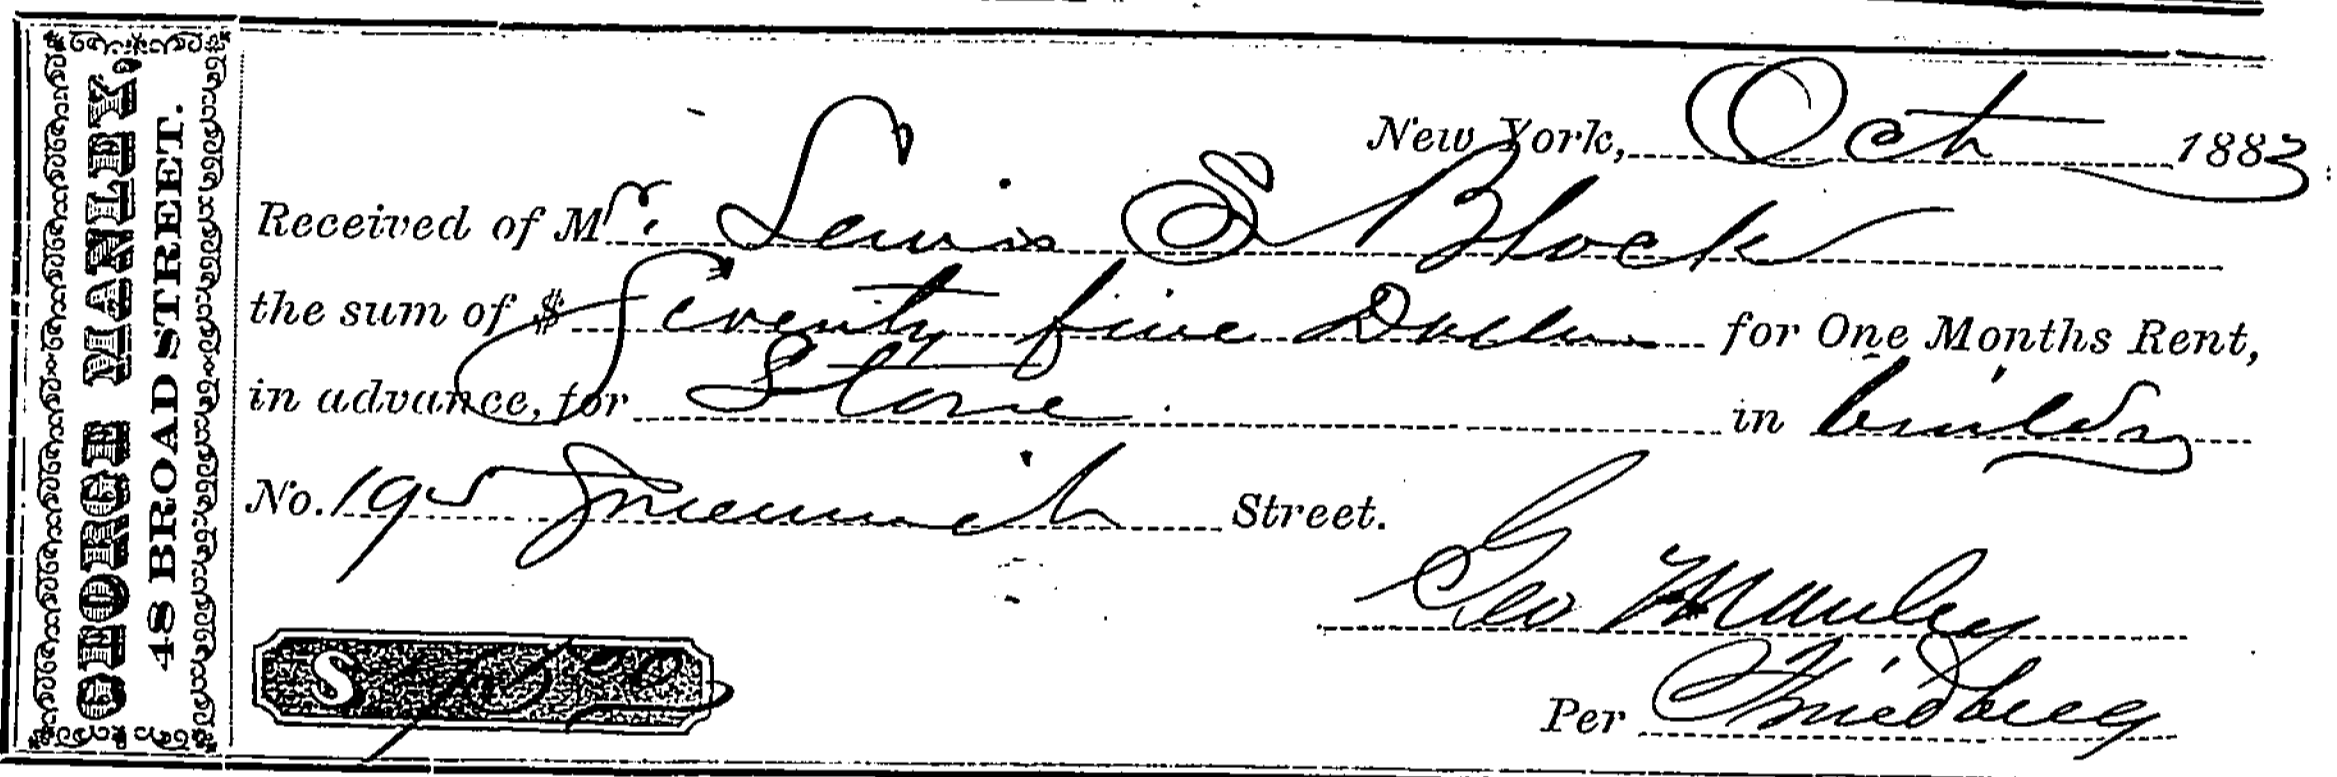 GEORGE MANLEY,
48 BROAD STREET.
New York, Oct 1883
Received of Mr. Lewis S Block
the sum of $ Seventy five Dollars for One Months Rent,
in advance, for Store in buildg
No. 195 Greenwich Street.
Geo Manley
$ 75 00
Per Friedberg